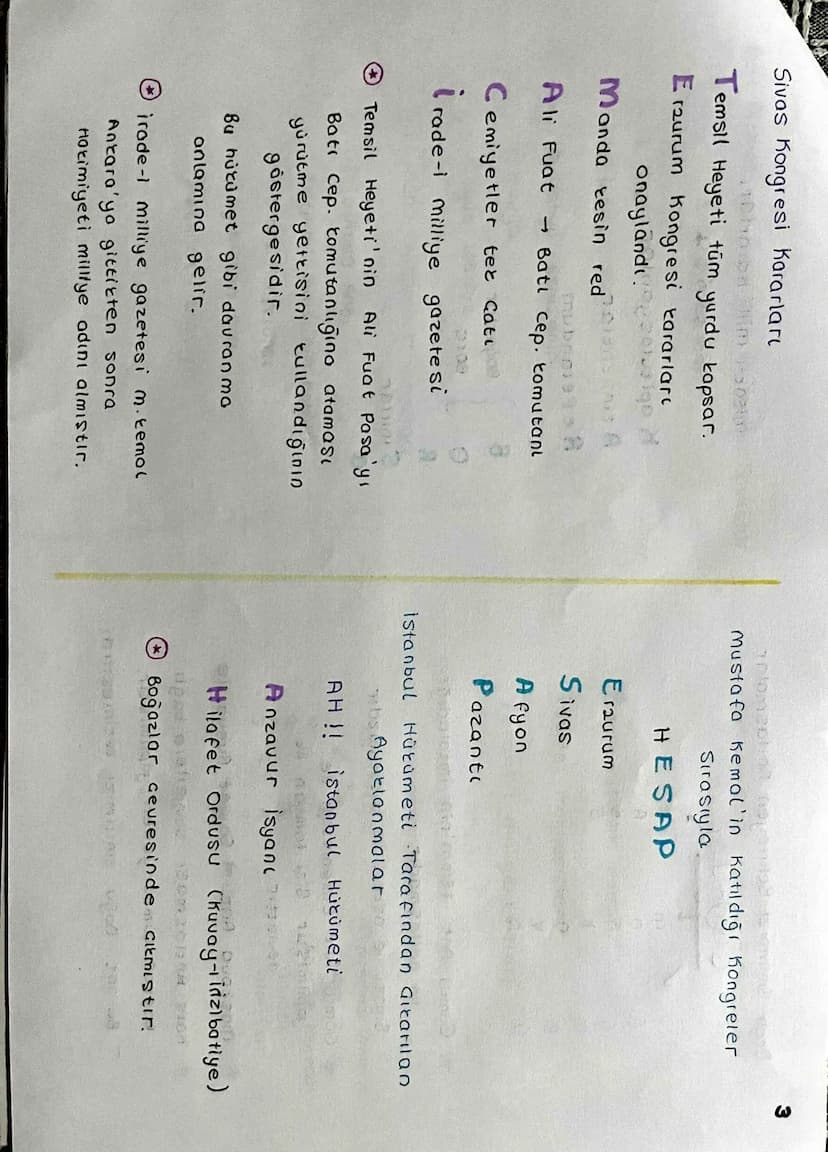 3
Sivas Kongresi Kararları
Temsil Heyeti tüm yurdu kapsar.
Erzurum Kongresi kararları
onaylandı.
Manda kesin red
Ali Fuat → Batı Cep. komutanı
Cemiyetler tek çatı
İrade-i milliye gazetesi
Temsil Heyeti'nin Ali Fuat Paşa'yı
Batı Cep. komutanlığına ataması
yürütme yetkisini kullandığının
göstergesidir.
Bu hükümet gibi davranma
anlamına gelir.
İrade-i milliye gazetesi m.kemal
Ankara'ya gittikten sonra
Hakimiyeti milliye adını almıştır.
Mustafa Kemal'in Katıldığı Kongreler
Sırasıyla
HESAP
Erzurum
Sivas
Afyon
Pazantı
İstanbul Hükümeti Tarafından Çıkarılan
Ayaklanmalar
AH!! İstanbul Hükümeti
Anzavur İsyanı
Hilafet Ordusu (Kuvay-ı İnzibatiye)
Boğazlar çevresinde çıkmıştır.